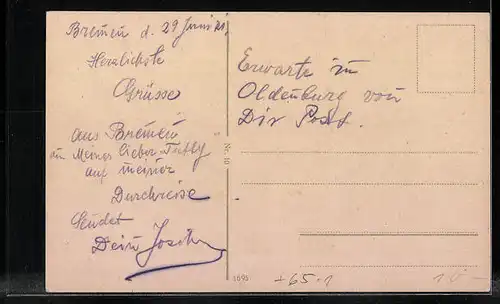 Bremen d. 29 Juni 21.
Herzlichste
Grüsse
aus Bremen
an Meiner lieber
auf meiner
Durchreise
Sendet
Dein
Erwarte in
Oldenburg von
Dir Post.
Nr. 10
1695
+65.1
10 –